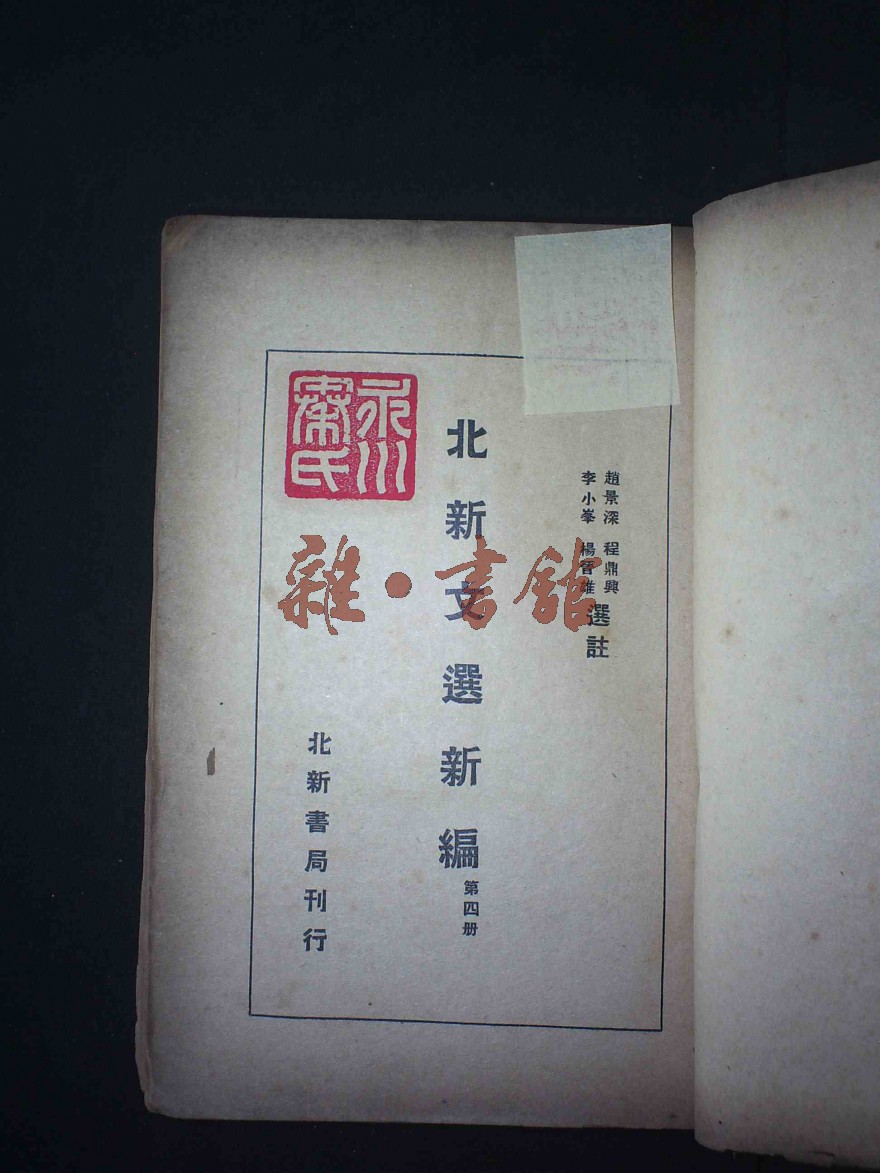 趙景深 程鼎興
李小峯 楊晉雄
選註
北新文選新編
第四册
北新書局刊行
永川
氏
雜·書館